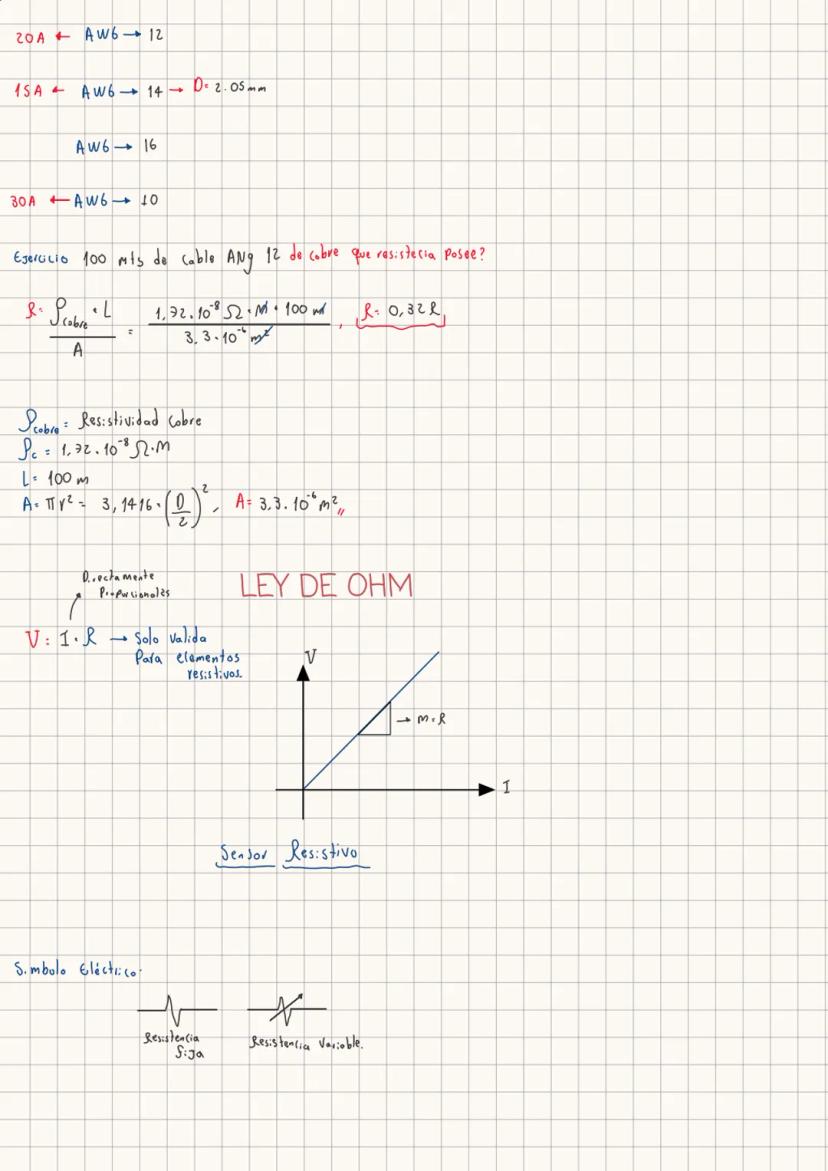 20A ← AWG → 12
15A ← AWG → 14 → D= 2.05mm
AWG → 16
30A ← AWG → 10
Ejercicio 100 mts de cable AWg 12 de cobre que resistecia posee?
R= ρcobre · L / A = 1,72·10⁻⁸ Ω·M · 100 m / 3,3·10⁻⁶ m² , R= 0,32R
ρcobre = Resistividad Cobre
ρc = 1,72·10⁻⁸ Ω·M
L= 100 m
A= πr² = 3,1416·(D/2)², A= 3,3·10⁻⁶ m² //
Directamente
Proporcionales
LEY DE OHM
V = I·R → Solo valida
Para elementos
resistivos.
V
→ M=R
I
Sensor Resistivo
Simbolo Eléctrico:
Resistencia
fija
Resistencia Variable.